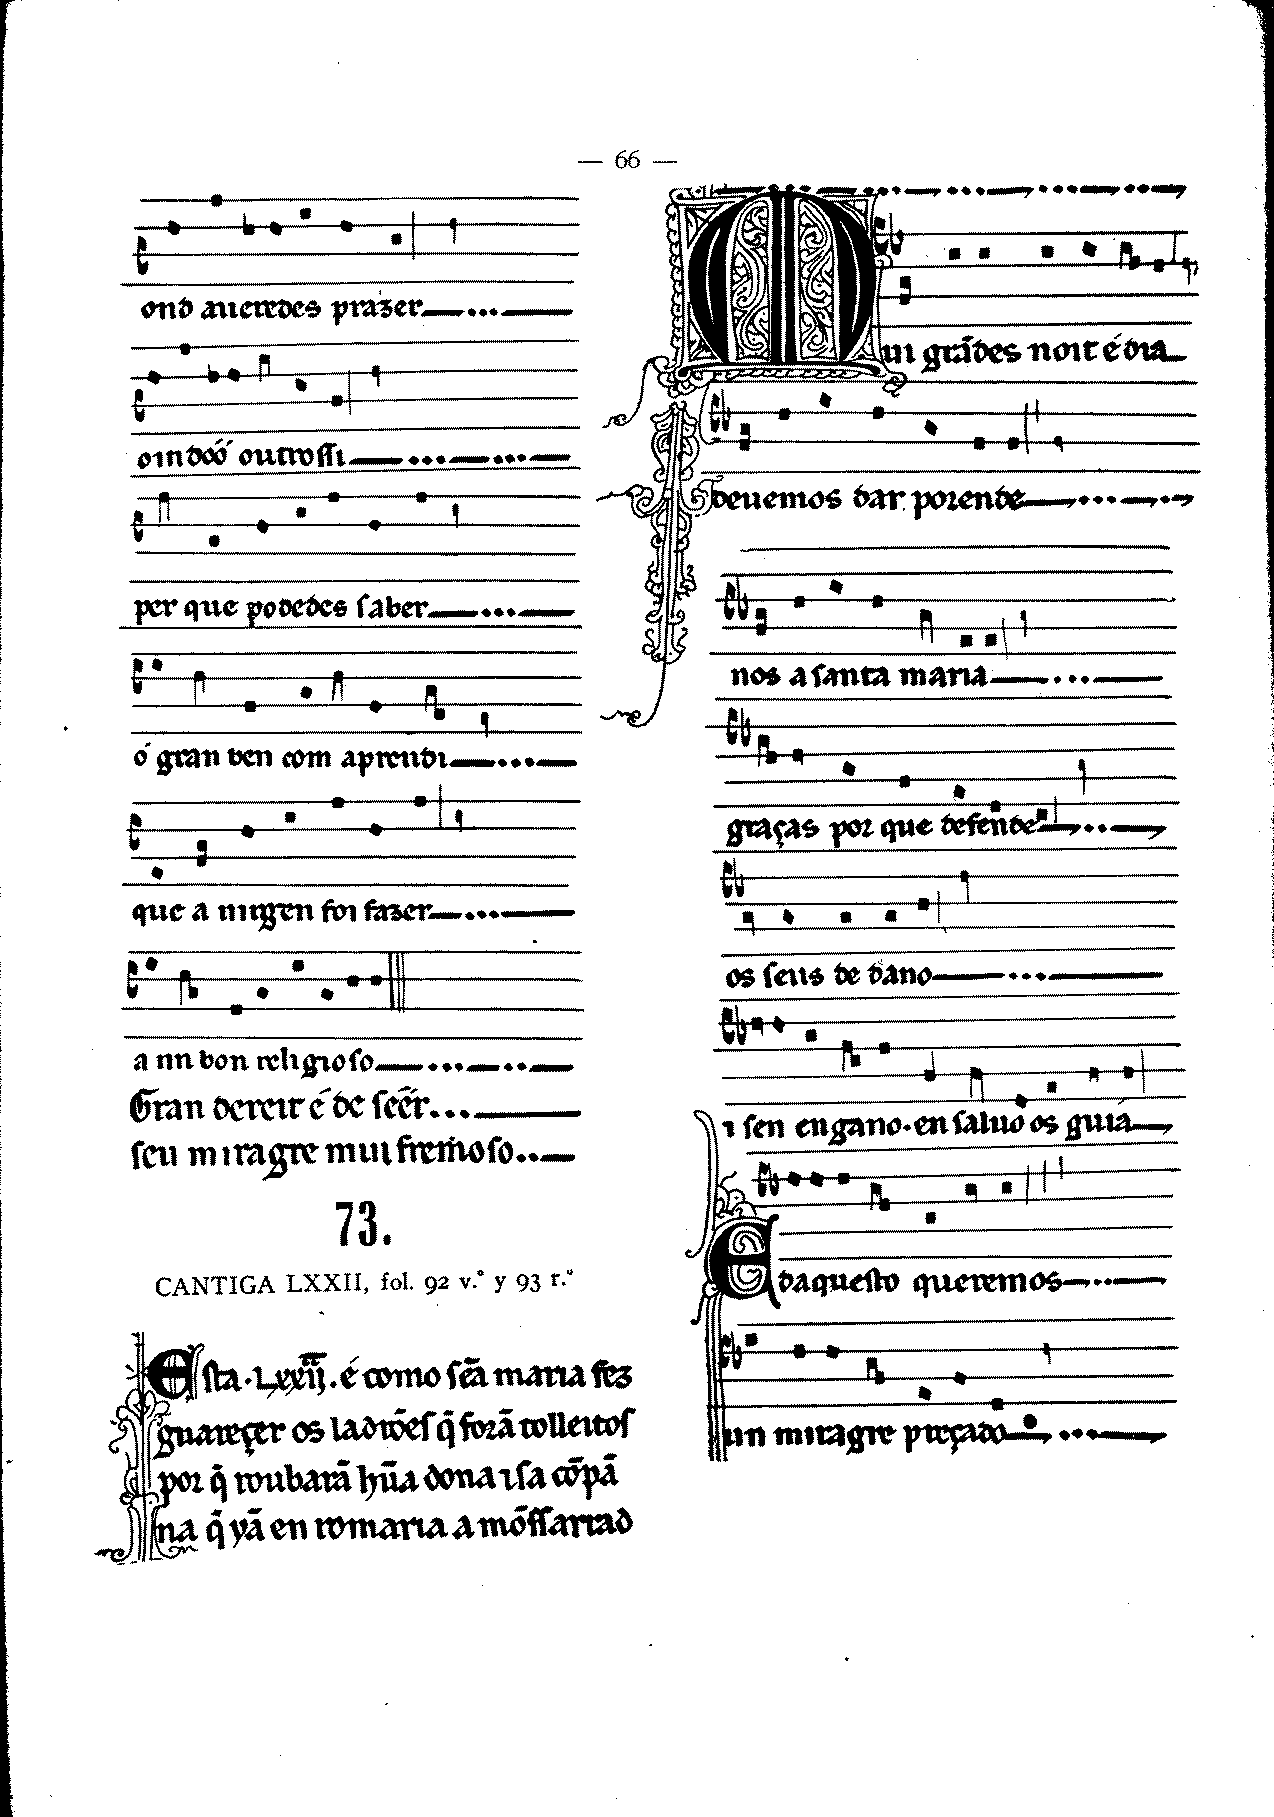 — 66 —
ond aueredes prazer
oindóó outrossi
per que podedes saber
ó gran ben com aprendi
que a uirgen foi fazer
a un bon religioso
Gran dereit é de seér
seu miragre mui fremoso
73.
CANTIGA LXXII, fol. 92 v.º y 93 r.º
Esta .Lxxij. é como sc̃a maria fez
guareçer os ladrões q̃ forã tolleitos
por q̃ roubarã hũa dona ⁊ sa cõpã
na q̃ yã en romaria a mõssarrad
Mui grãdes noit é dia
deuemos dar porende
nos a santa maria
graças por que defende
os seus de dano
⁊ sen engano · en saluo os guia
E daquesto queremos
un miragre preçado